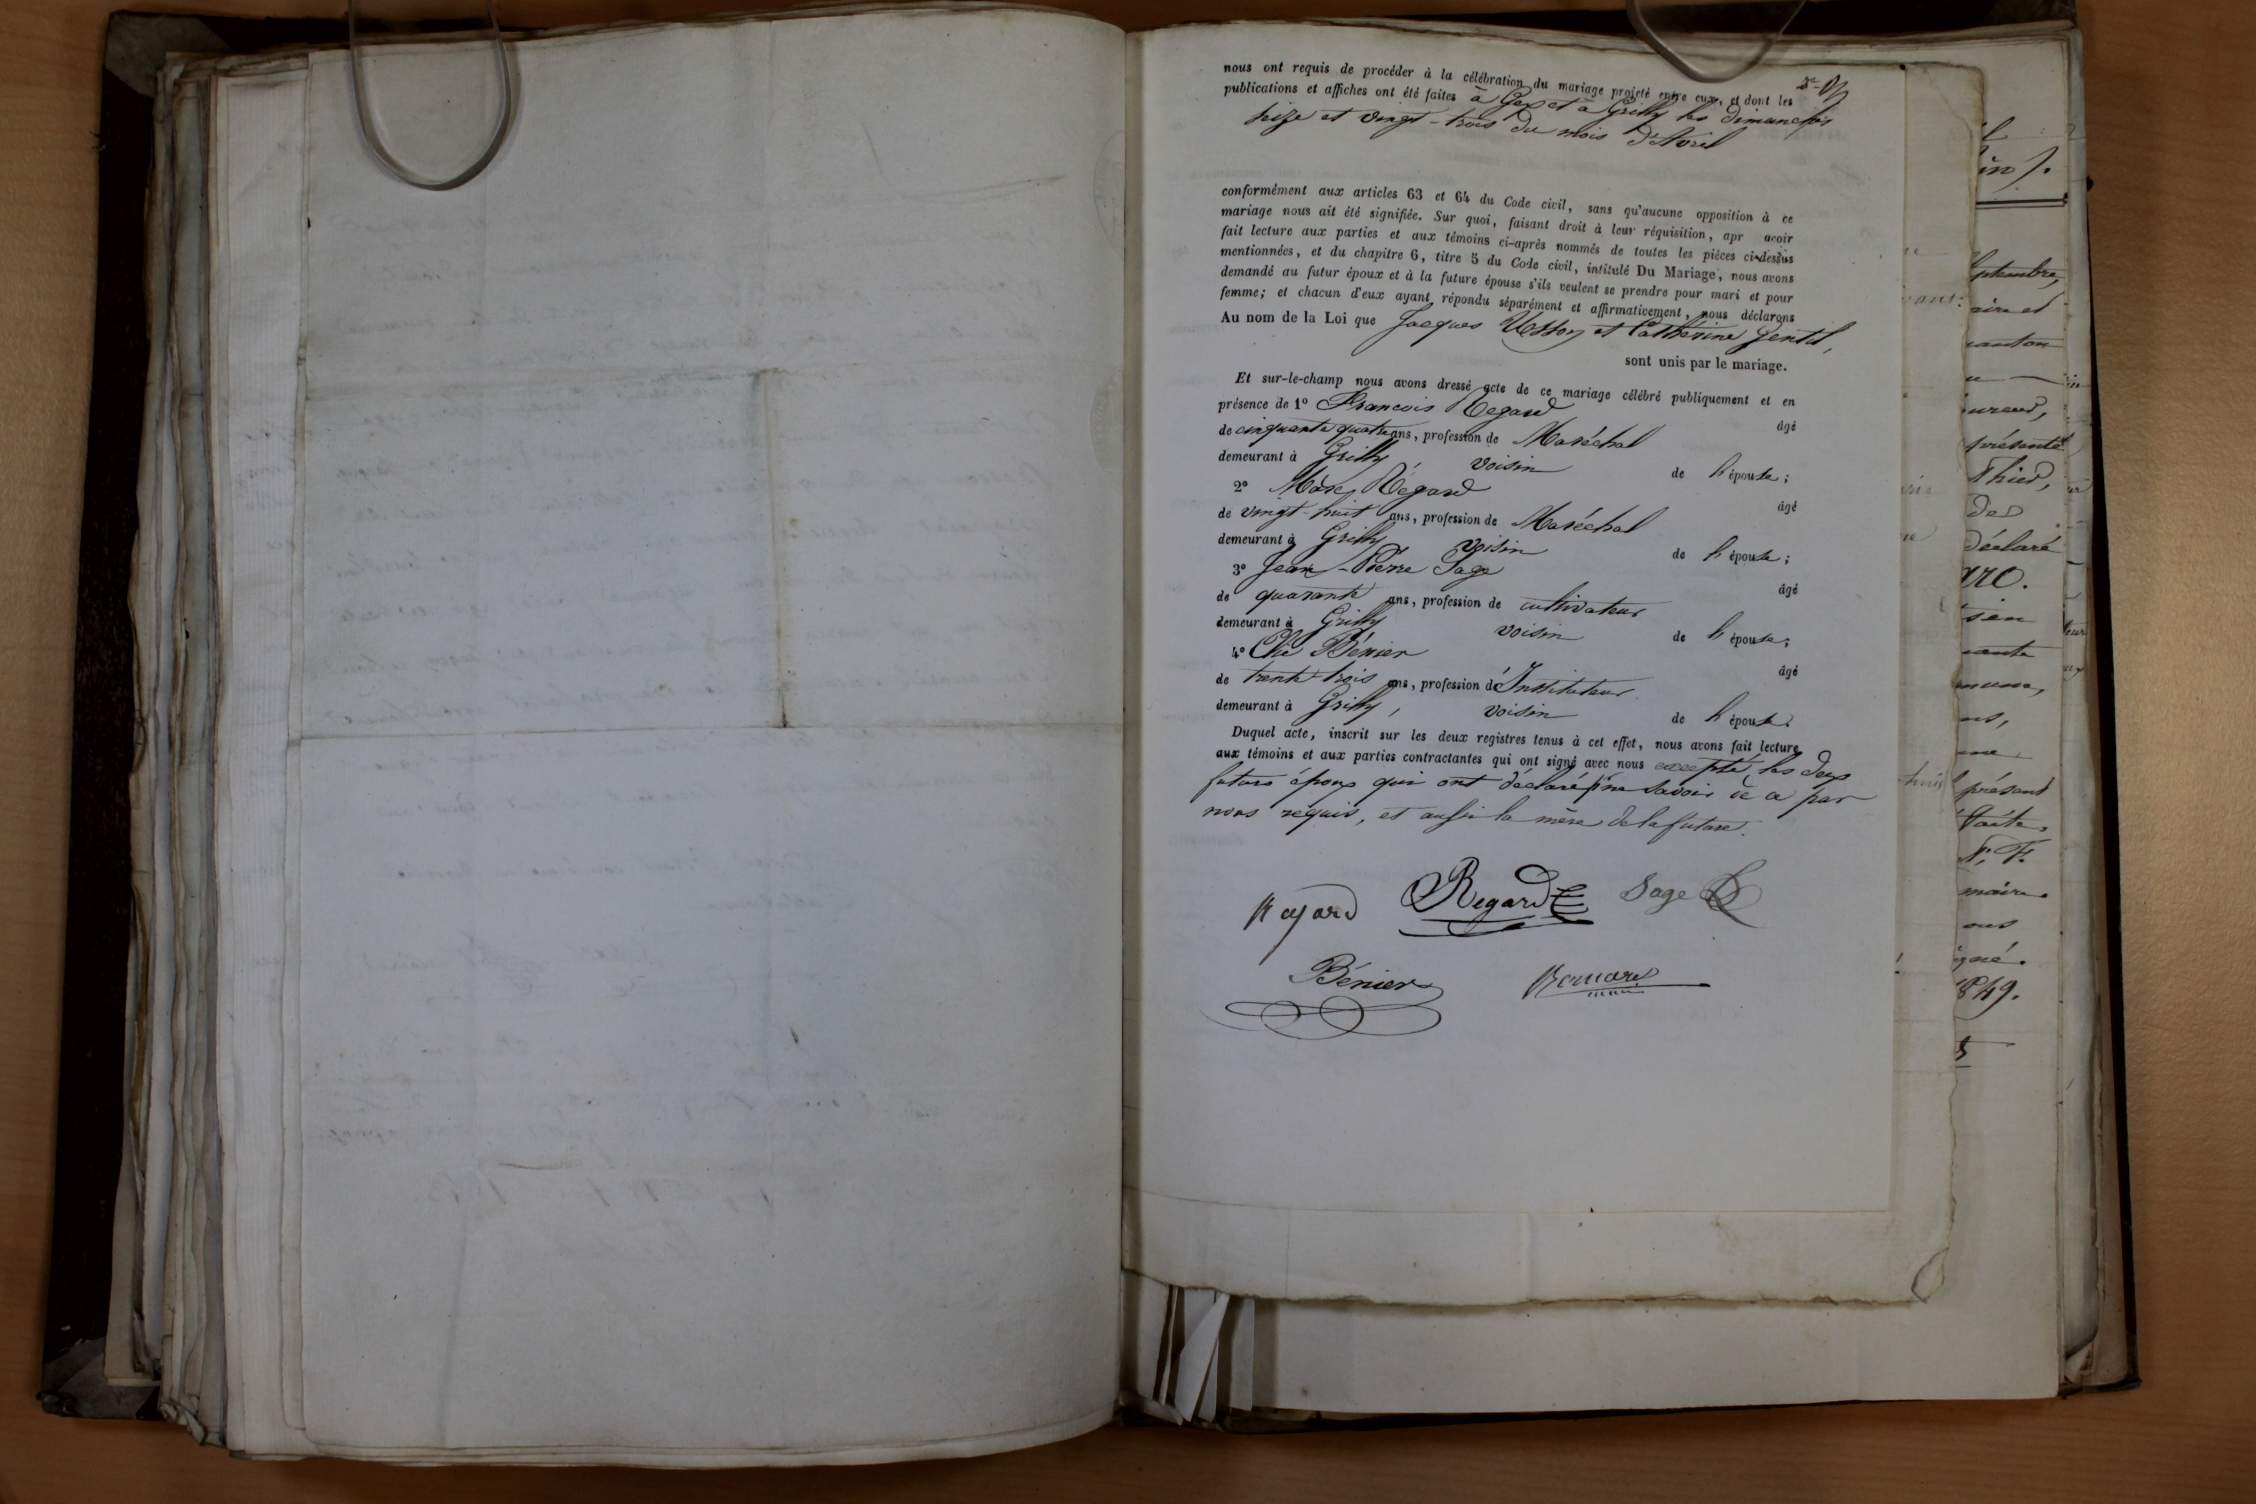 nous ont requis de procéder à la célébration du mariage projeté entre eux, et dont les
publications et affiches ont été faites à Gex et à Grilly les dimanches
seize et vingt-trois du mois d'Avril
conformément aux articles 63 et 64 du Code civil, sans qu'aucune opposition à ce
mariage nous ait été signifiée. Sur quoi, faisant droit à leur réquisition, apr avoir
fait lecture aux parties et aux témoins ci-après nommés de toutes les pièces ci-dessus
mentionnées, et du chapitre 6, titre 5 du Code civil, intitulé Du Mariage, nous avons
demandé au futur époux et à la future épouse s'ils veulent se prendre pour mari et pour
femme; et chacun d'eux ayant répondu séparément et affirmativement, nous déclarons
Au nom de la Loi que Jacques et Catherine Gentil,
sont unis par le mariage.
Et sur-le-champ nous avons dressé acte de ce mariage célébré publiquement et en
présence de 1° Francois Regard
âgé
de cinquante quatre ans, profession de Maréchal
demeurant à Grilly voisin de l'épouse;
2° Marc Régard
âgé
de vingt-huit ans, profession de Maréchal
demeurant à Grilly voisin de l'épouse;
3° Jean-Pierre Sage
âgé
de quarante ans, profession de cultivateur
demeurant à Grilly voisin de l'épouse;
4° Bénier
âgé
de trente trois ans, profession d'Instituteur
demeurant à Grilly, voisin de l'épouse.
Duquel acte, inscrit sur les deux registres tenus à cet effet, nous avons fait lecture
aux témoins et aux parties contractantes qui ont signé avec nous excepté les deux
futurs époux qui ont déclaré ne savoir de ce par
nous requis, et aussi la mère de la future.
Regard Sage
Bénier
ptembre,
aire et
canton
présenté
Thied,
des
déclaré
s'en
présent
faite,
maire
ous
igné.
1849.